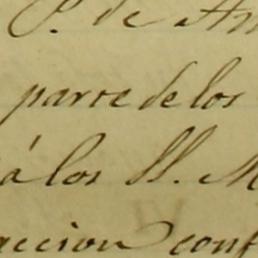 P. de
parte de los
á los SS.
accion conf